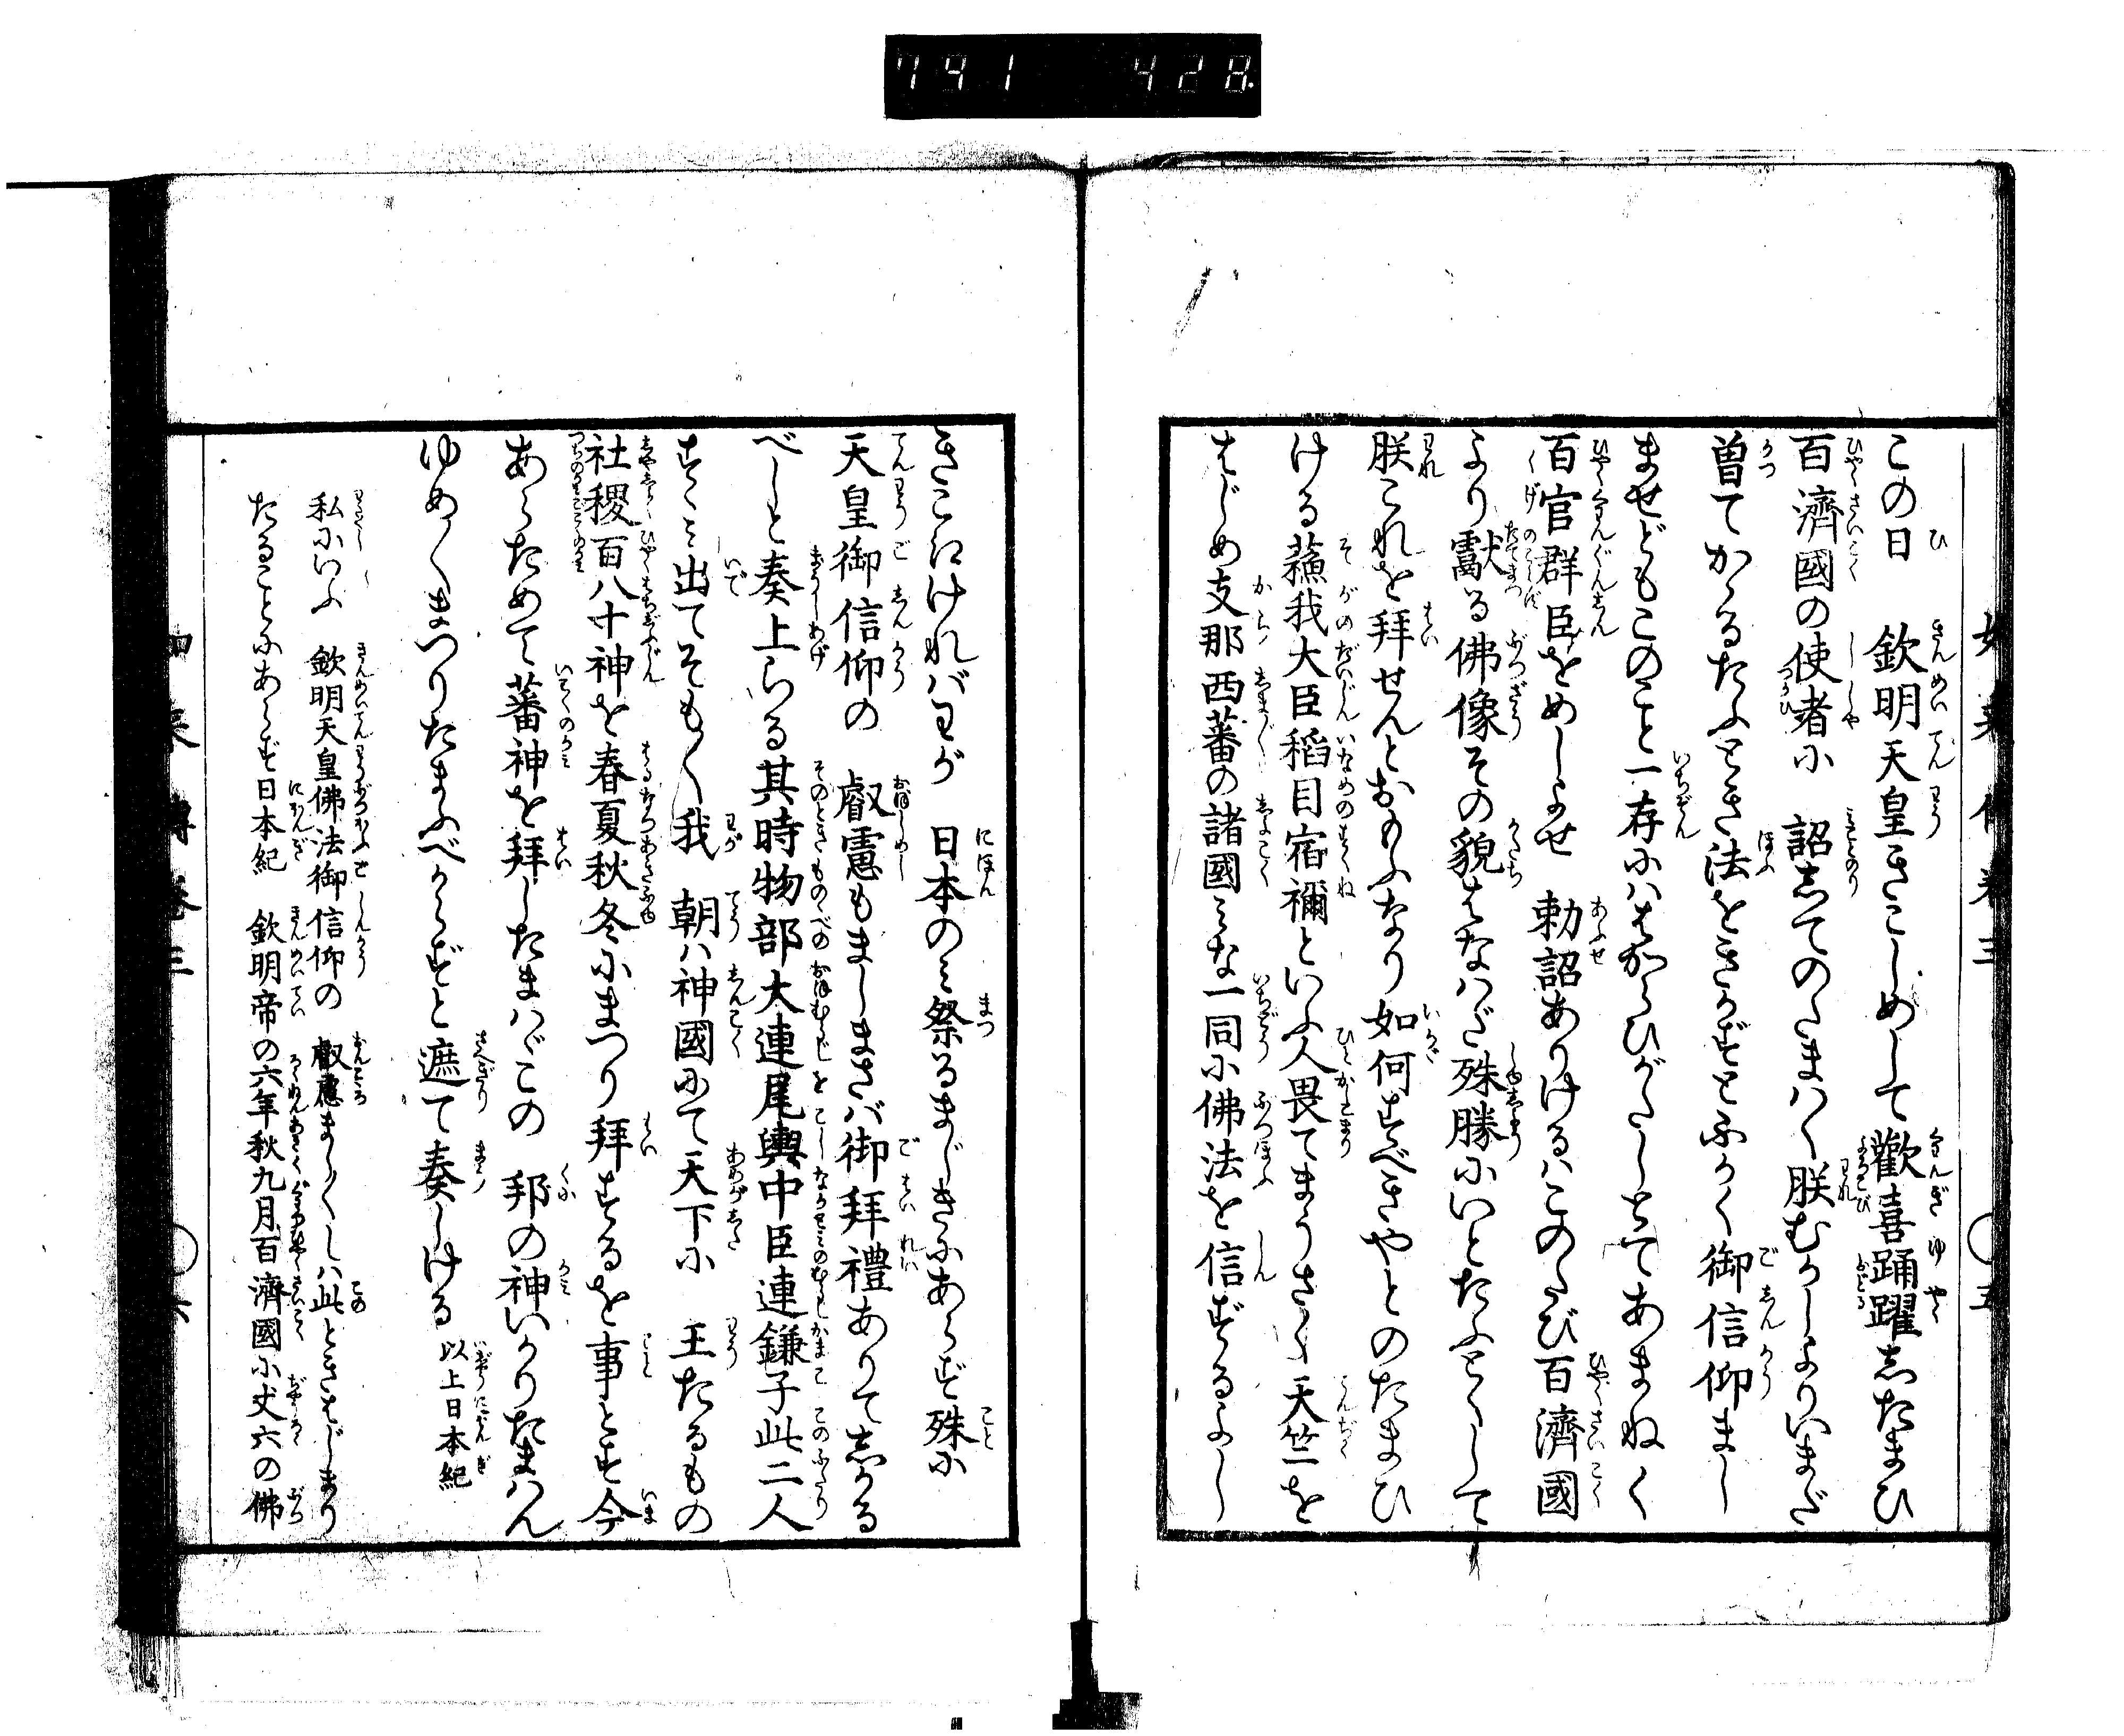 791 428
この日　欽明天皇きこしめして歡喜踊躍志たまひ
百濟國の使者に　詔志てのたまはく朕むかしよりいまだ
曽てかゝるたふとき法をきかずとふかく御信仰まし
ませどもこのこと一存にハはからひがたしとてあまねく
百官群臣をめしよせ　勅詔ありけるハこのたび百濟國
より獻る佛像その貌はなハだ殊勝にいとたふとくして
朕これを拜せんとおもふなり如何すべきやとのたまひ
ける蘓我大臣稻目宿禰といふ人畏てまうさく天竺を
はじめ支那西蕃の諸國みな一同に佛法を信ずるよし
きこえけれバわが　日本のみ祭るまじきにあらず殊に
天皇御信仰の　叡慮もましまさバ御拜禮ありて志かる
べしと奏上らる其時物部大連尾輿中臣連鎌子此二人
すゝみ出てそも〳〵我　朝ハ神國にて天下に　王たるもの
社稷百八十神を春夏秋冬にまつり拜するを事とす今
あらためて蕃神を拜したまハゞこの　邦の神いかりたまハん
ゆめ〳〵まつりたまふべからずと遮て奏しける　以上日本紀
私にいふ　欽明天皇佛法御信仰の　叡慮まし〳〵しハ此ときはじまり
たることにあらず日本紀　欽明帝の六年秋九月百濟國に丈六の佛